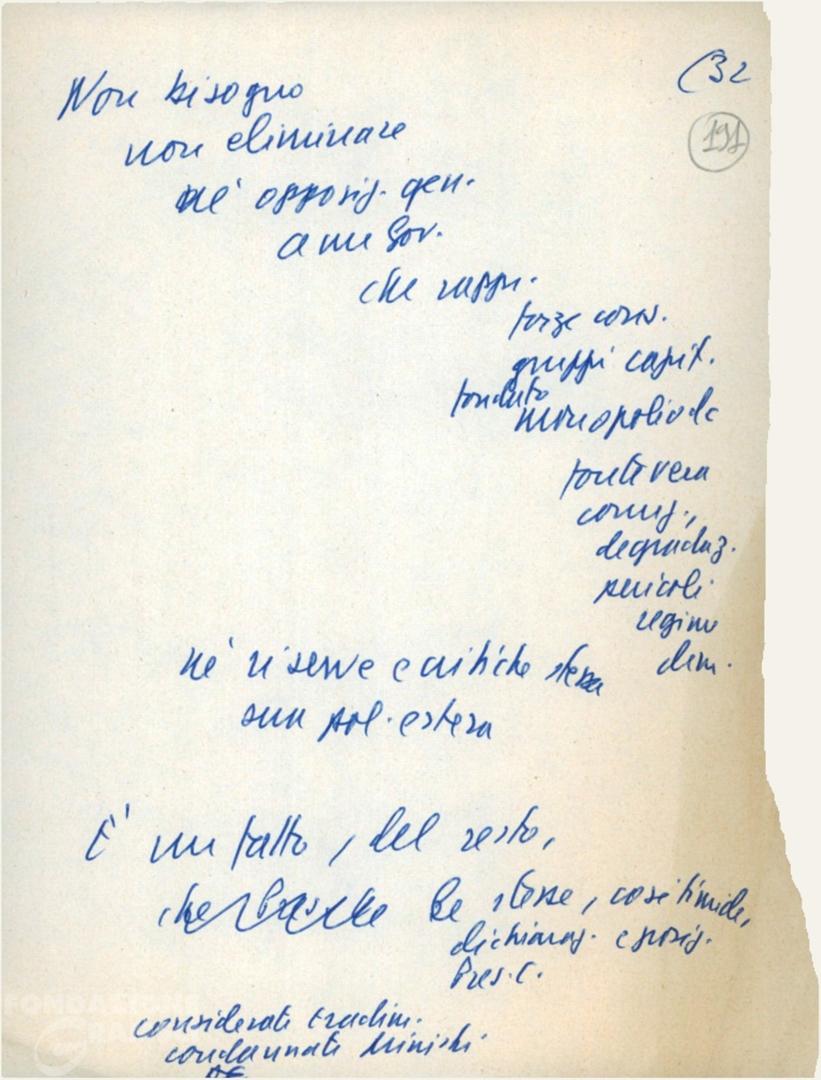 (32
191
Non bisogno
non eliminare
né opposiz. gen.
a un Gov.
che rappr.
forze cons.
gruppi capit.
fondato
monopolio dc
fonte vera
corruz.,
degradaz.
pericoli
regime
dem.
né riserve e critiche stessa
sua pol. estera
È un fatto, del resto,
che le stesse, così timide,
dichiaraz. e posiz.
Pres. C.
considerate tradim.
condannate Ministri
FONDAZIONE